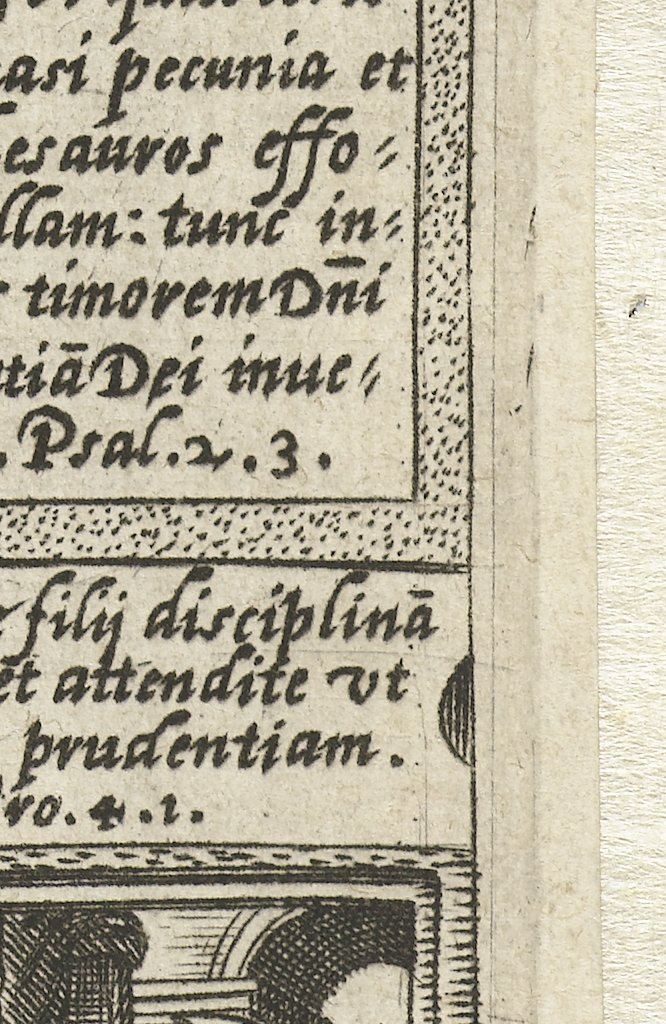 asi pecunia et
esauros effo⸗
llam: tunc in⸗
timorem Dn̄i
tiā Dei inue⸗
. Psal. 2. 3.
filij disciplinā
et attendite vt
prudentiam.
ro. 4. 1.